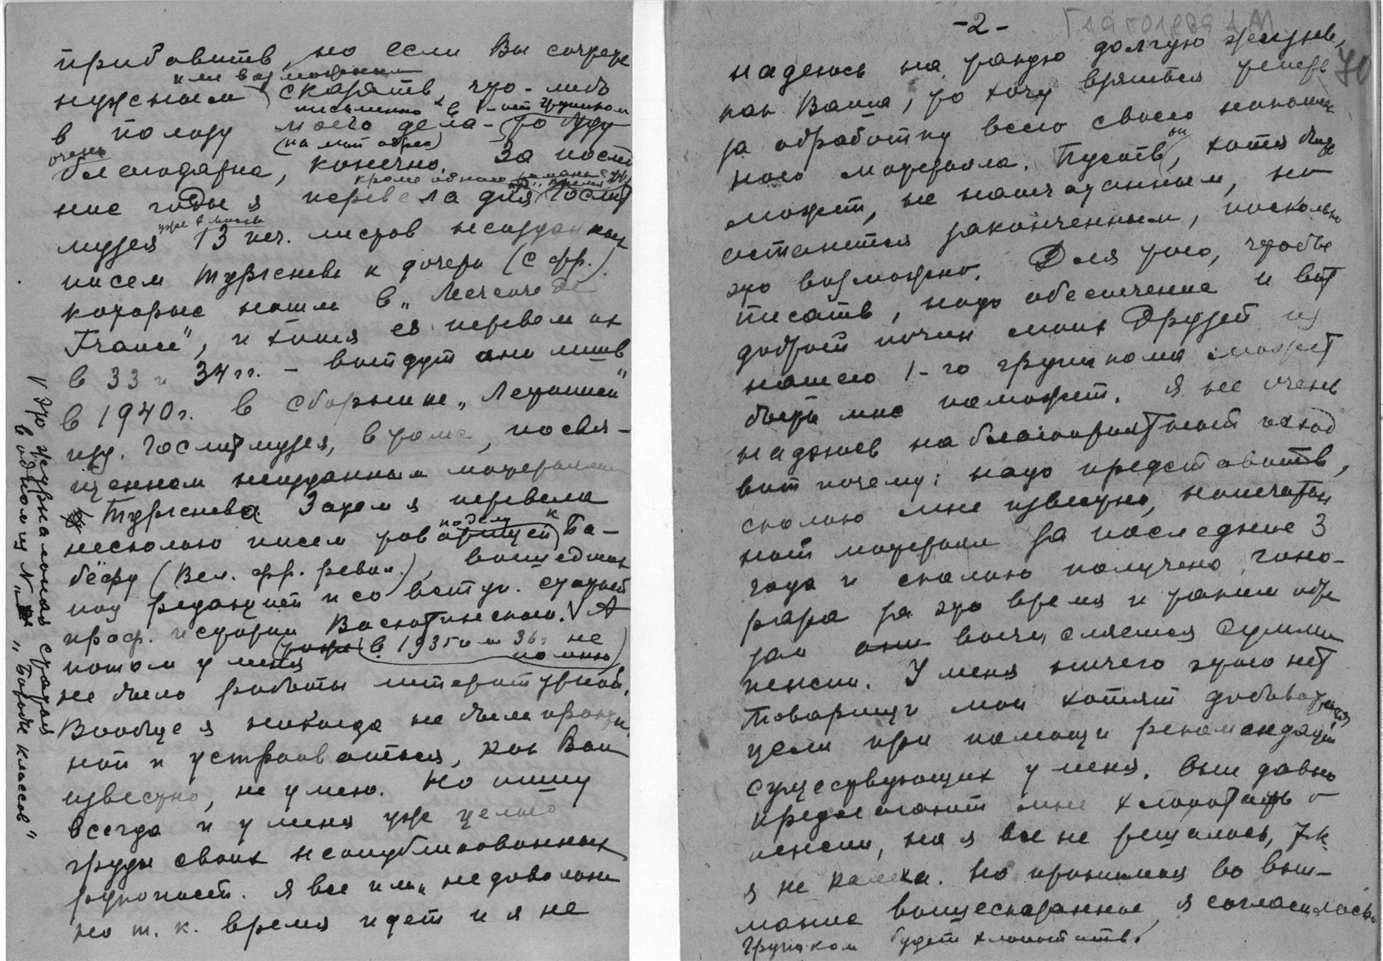 прибавить, но если Вы сочтете
или возможным
нужным сказать, что-либо
письменно в 1-ый групком
в пользу моего дела - то буду
(на мой адрес)
очень
благодарна, конечно. За послед
кроме одного романа
ние годы я перевела для Гослит
уже в
музея 13 печ. листов неизданных
писем Тургенева к дочери (с фр.)
которые нашли в „ de
France", и хотя я их перевела их
в 33 и 34 гг. - выйдут они лишь
в 1940 г. в сборнике „Летописи"
изд. Гослитмузея, в томе, посвя-
щенном неизданным материалам
Тургенева. Затем я перевела
несколько писем к Ба-
бёфу (Вел. фр. револ.), вошедших
под редакцией и со вступ. статьей
проф. истории Васютинского. V А
(в 1935 или 36 г не
помню)
потом у меня
не было работы литературной.
Вообще я никогда не была
ной и устраиваться, как Вам
известно, не умею. Но пишу
всегда и у меня уже целые
груды своих неопубликованных
рукописей. Я все ими недовольна
но т. к. время идет и я не
V Это журнальная статья
в одном из № „Борьбы классов"
-2-
70
надеюсь на такую долгую жизнь,
как Ваша, то хочу взяться теперь
за обработку всего своего накоплен
ного материала. Пусть он, хотя быть
может, не напечатанным, но
останется законченным, поскольку
это возможно. Для того, чтобы
писать, надо обеспечение и вот
добрый почин моих друзей из
нашего 1-го групкома может
быть мне поможет. Я не очень
надеюсь на благоприятный исход
вот почему: надо представить,
сколько мне известно, напечатан
ный материал за последние 3
года и сколько получено гоно-
рара за это время и таким обра
зом вычисляется сумма
пенсии. У меня ничего этого нет
Товарищи мои хотят добиваться
цели при помощи рекомендаций
существующих у меня. Они давно
предлагают мне хлопотать о
пенсии, но я все не решалась, т.к.
я не калека. Но принимая во вни-
мание вышесказанное, я согласилась.
Групком будет хлопотать.